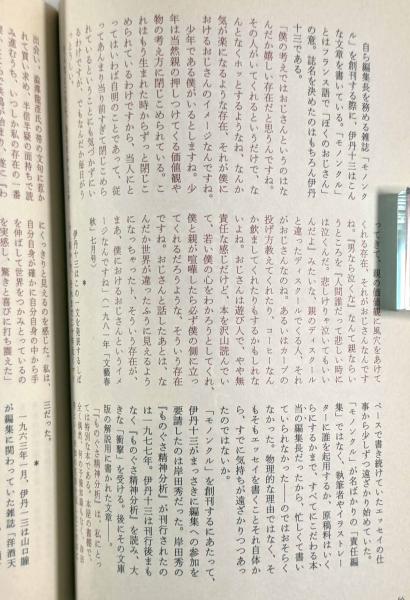 自ら編集長を務める雑誌「モノンク
ル」を創刊する際に、伊丹十三はこん
な文章を書いている。「モノンクル」
とはフランス語で「ぼくのおじさん」
の意。誌名を決めたのはもちろん伊丹
十三である。
「僕の考えではおじさんというのはな
んだか嬉しい存在だと思うんですね。
その人がいてくれるというだけで、な
んとなくホッとするようなね、なんか
気が楽になるような存在、それが僕に
おけるおじさんのイメージなんですね。
少年である僕がいるとしますね。少
年は当然親の押しつけてくる価値観や
物の考え方に閉じこめられている。こ
れはもう生まれた時からずっと閉じこ
められているわけですから、当人にと
ってはいわば自明のことであって、従
ってあんまり当り前すぎて閉じこめら
れているということにも気づかずにい
るわけですが、でもなんだか毎日がう
親の価値観に風穴をあけて
くれる存在、それがおじさんなんです
ね。「男なら泣くな」なんて親ならい
うところを「人間誰だって悲しい時に
は泣くんだ。悲しけりゃ泣いてもいい
んだよ」みたいな、親のディスクール
と違ったディスクールでくる人、それ
がおじさんなのね。あるいはカーブの
投げ方教えてくれたり、コーヒーなん
か飲ましてくれたりもするかもしれな
いよね。おじさんは遊び人で、やや無
責任な感じだけど、本を沢山読んでい
て、若い僕の心をわかろうとしてくれ
僕と親が喧嘩したら必ず僕の側に立っ
てくれるだろうような、そういう存在
ですね。おじさんと話したあとは、な
んだか世界が違ったふうに見えるよう
になっちゃったト、そういう存在が、
まあ、僕におけるおじさんというイメ
ージなんですね」（一九八一年「文藝春
秋」七月号）
＊
伊丹十三はこの一文を
ペースで書き続けていたエッセイの仕
事から少しずつ遠ざかり始めていた。
「モノンクル」が名ばかりの「責任編
集」ではなく、執筆者やイラストレー
ターに誰を起用するか、原稿料はいく
らにするかまで、すべてにこだわる本
当の編集長だったから、忙しくて書い
ていられなかった――のではおそらく
なかった。物理的な理由ではなく、そ
もそもエッセイを書くことそれ自体か
ら、すでに気持ちが遠ざかりつつあっ
たのではないか。
「モノンクル」を創刊するにあたって、
伊丹十三がまっさきに編集への参加を
要請したのは岸田秀だった。岸田秀の
『ものぐさ精神分析』が刊行されたの
は一九七七年。伊丹十三は刊行後まも
なく『ものぐさ精神分析』を読み、大
きな「衝撃」を受ける。後にその文庫
版の解説用に書かれた文章。
「『ものぐさ精神分析』は、私にとっ
ては特別な本である。
出会い、
れて買い求め、半信半疑の面持ちで読
み進むうち、いつしか私の存在の一番
にくっきりと見えるのを感じた。私は、
自分自身が確かに自分自身の中から手
を伸ばして世界をつかみとっているの
を実感し、驚きと喜びに打ち震えた」
三だった。
＊
一九六三年一月、伊丹一三は山口瞳
が編集に関わっていた雑誌「洋酒天